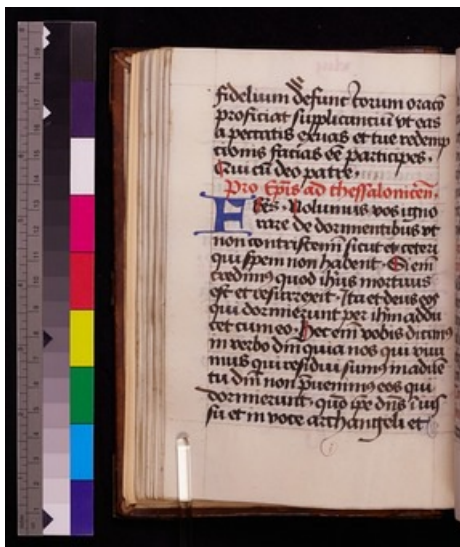 fidelium defunctorum oracō
proficiat supplicanciū vt eas
a peccatis exuas et tue redemp
cionis facias eē participes.
Qui cū deo patre.
Pro Ep̄is ad thessalonicēn.
Frēs. Nolumus vos igno
rare de dormientibus vt
non contristemī sicut et ceteri
qui spem non habent. Si em̄
credimꝰ quod ih̄us mortuus
est et resurrexit. Ita et deus eos
qui dormierunt per ih̄m addu
cet cum eo. Hec em̄ vobis dicimꝰ
in verbo dn̄i quia nos qui viui
mus qui residui sumꝰ in aduē
tu dn̄i non p̄uenimꝰ eos qui
dormierunt. quō ip̄e dn̄s ī ius
su et in voce archangeli et